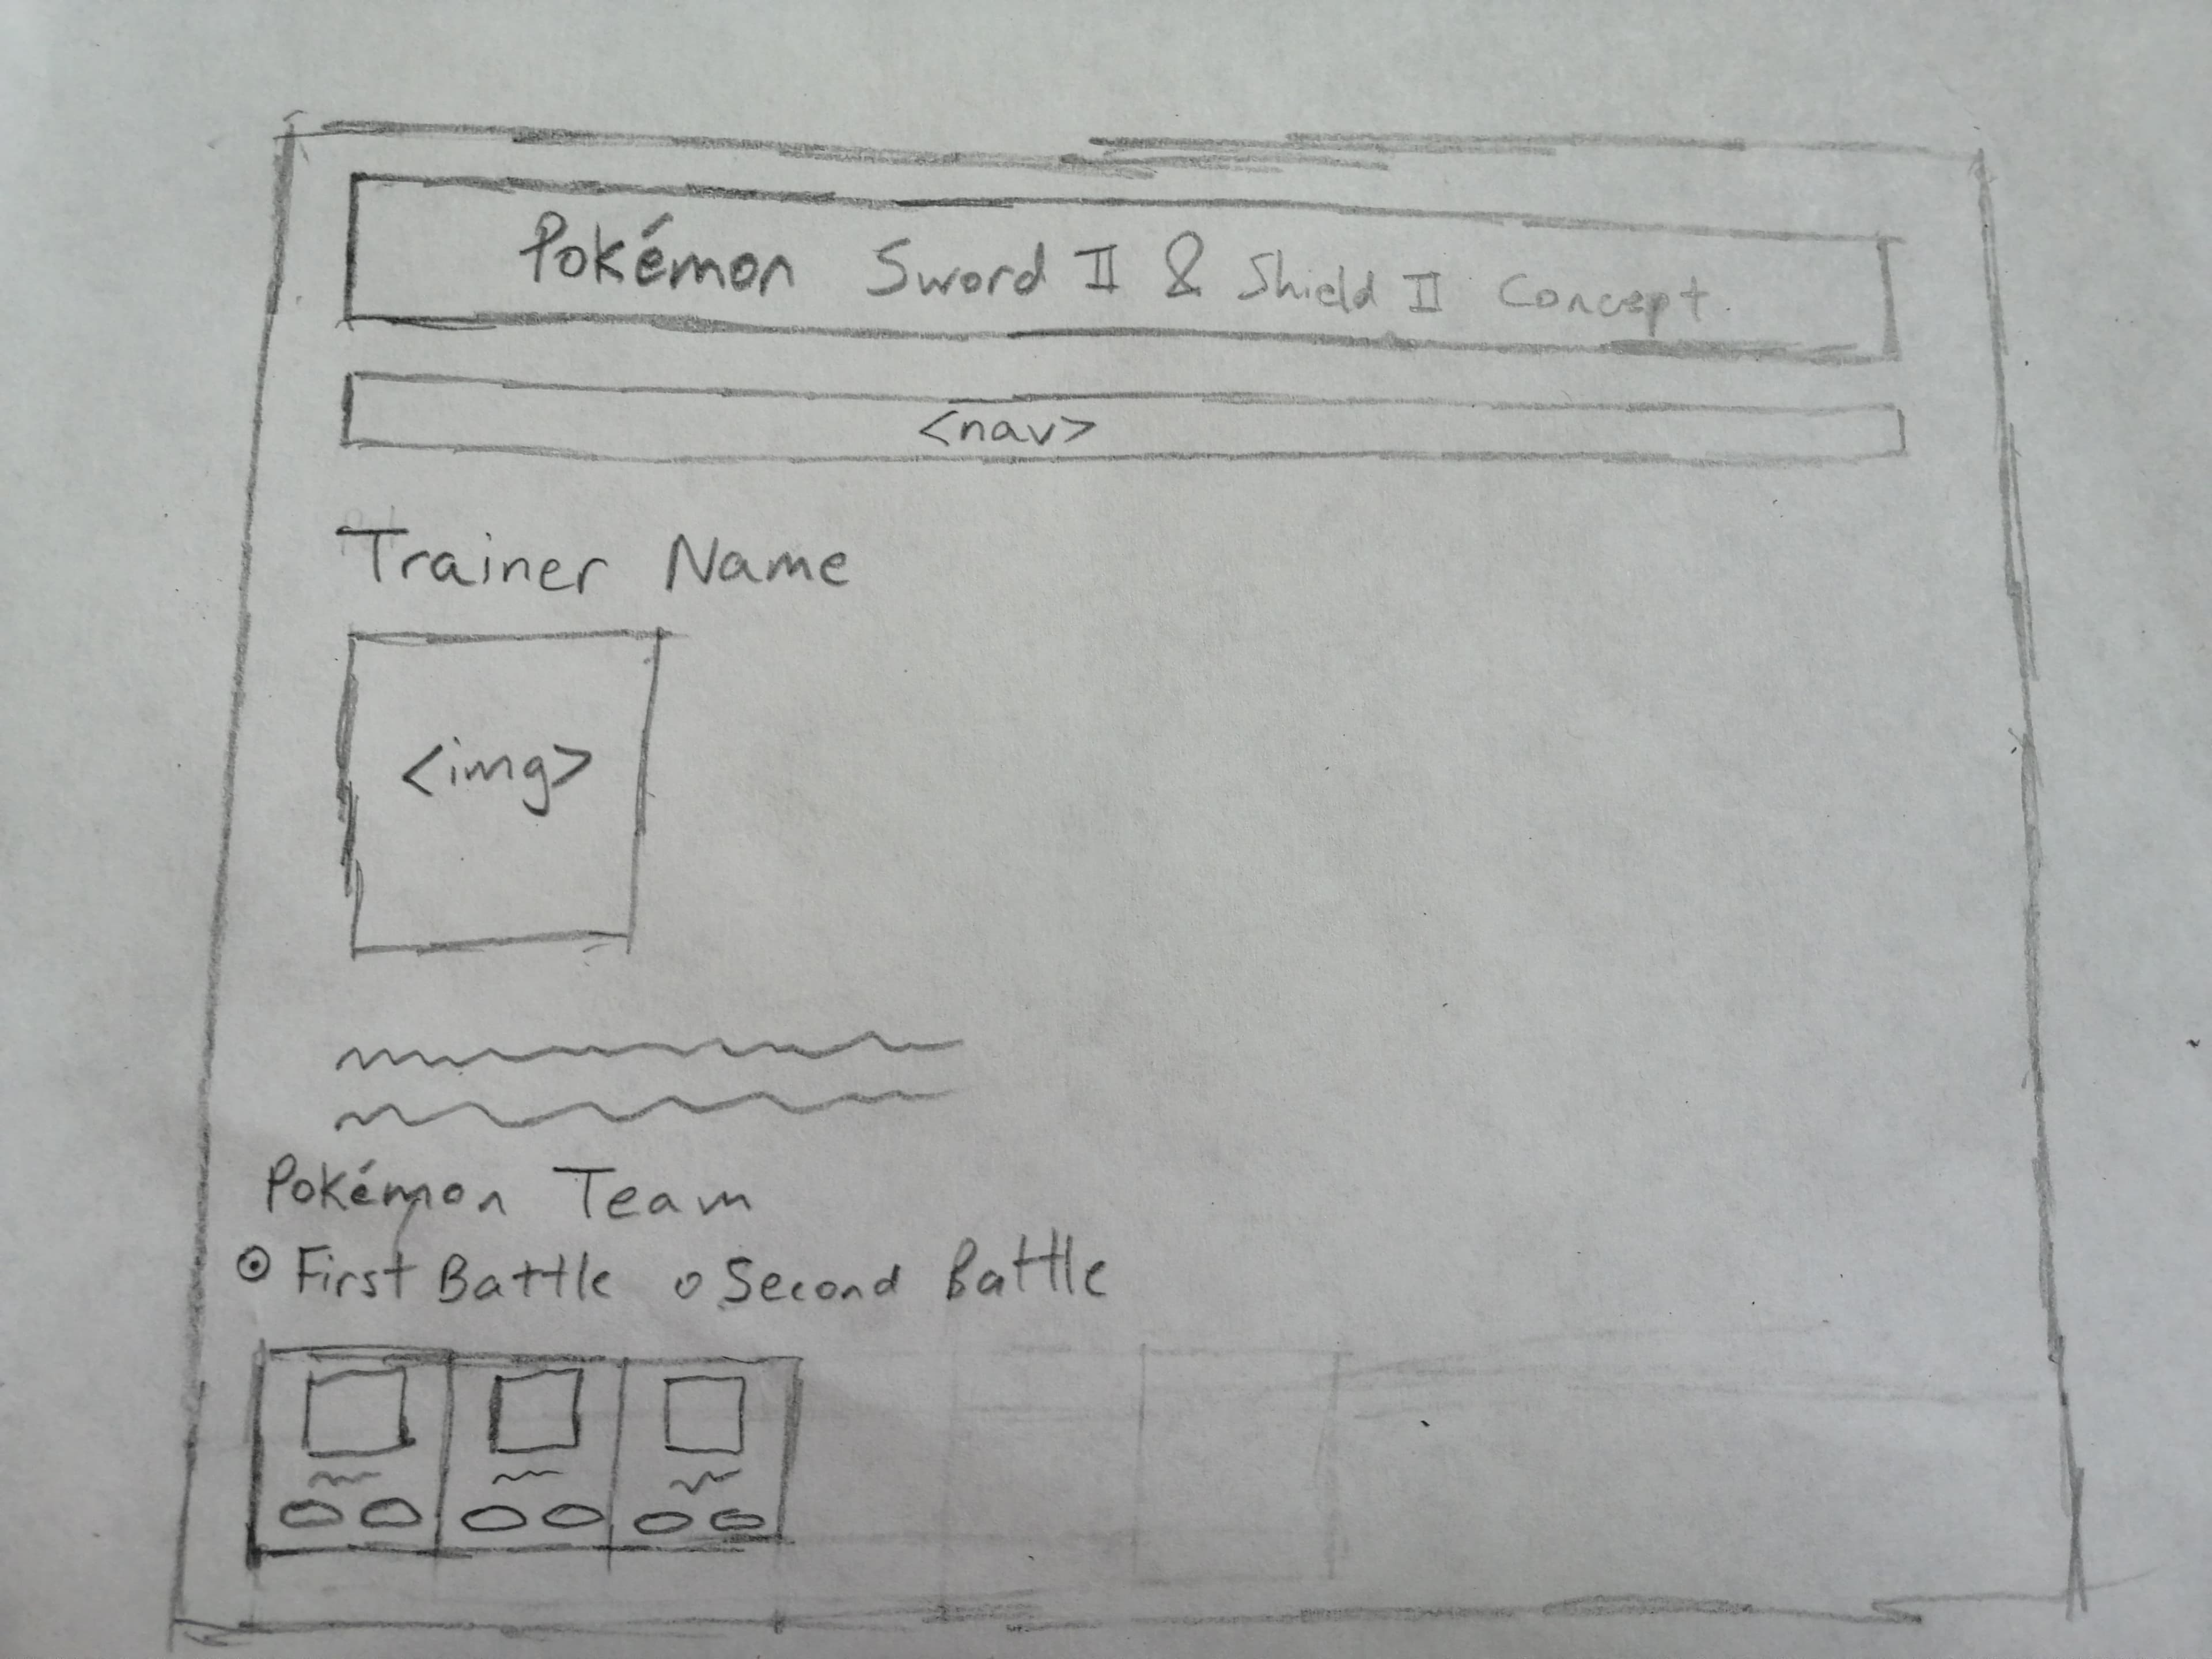 Pokémon Sword II & Shield II Concept
<nav>
Trainer Name
<img>
Pokémon Team
First Battle Second Battle